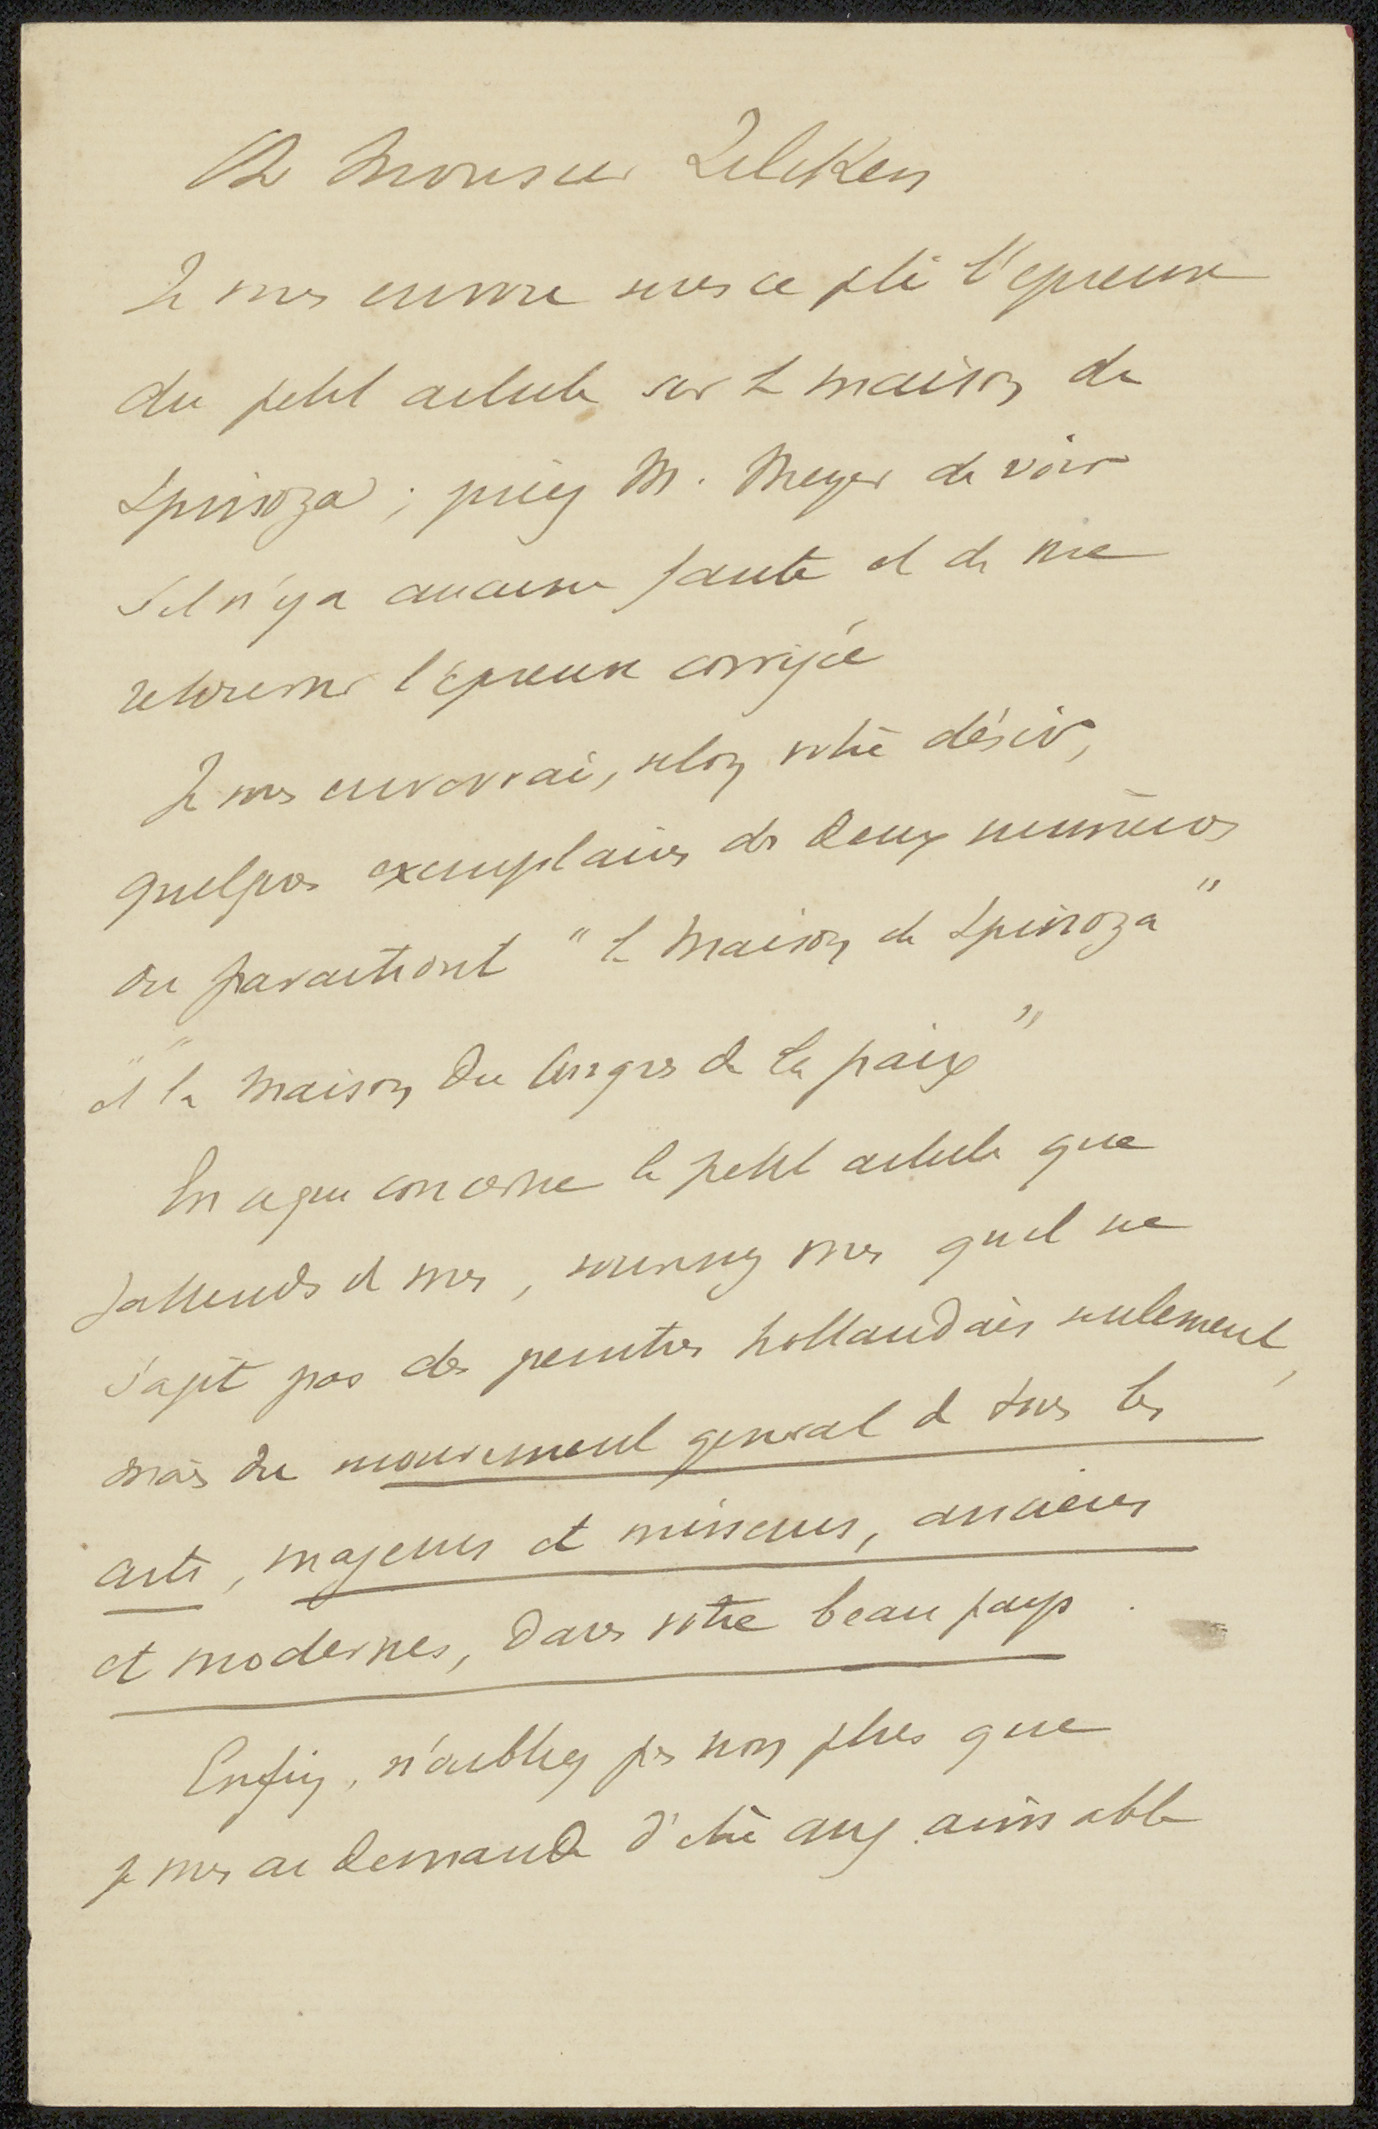 Ch Monsieur Zilcken
Je vous envoie sous ce pli l'epreuve
du petit article sur la maison de
Spinoza ; priez M. Meyer de voir
s'il n'y a aucune faute et de me
retourner l'épreuve corrigée
Je vous enverrai, selon votre désir,
quelques exemplaires des deux numéros
ou paraitront "la Maison de Spinoza"
et "la Maison du Congrès de la paix"
En ce qui concerne le petit article que
j'attends de vous, souvenez vous qu'il ne
s'agit pas des peintres hollandais seulement,
mais du mouvement general de tous les
arts, majeurs et mineurs, anciens
et modernes, dans votre beau pays.
Enfin, n'oubliez pas non plus que
je vous ai demandé d'être assez aimable